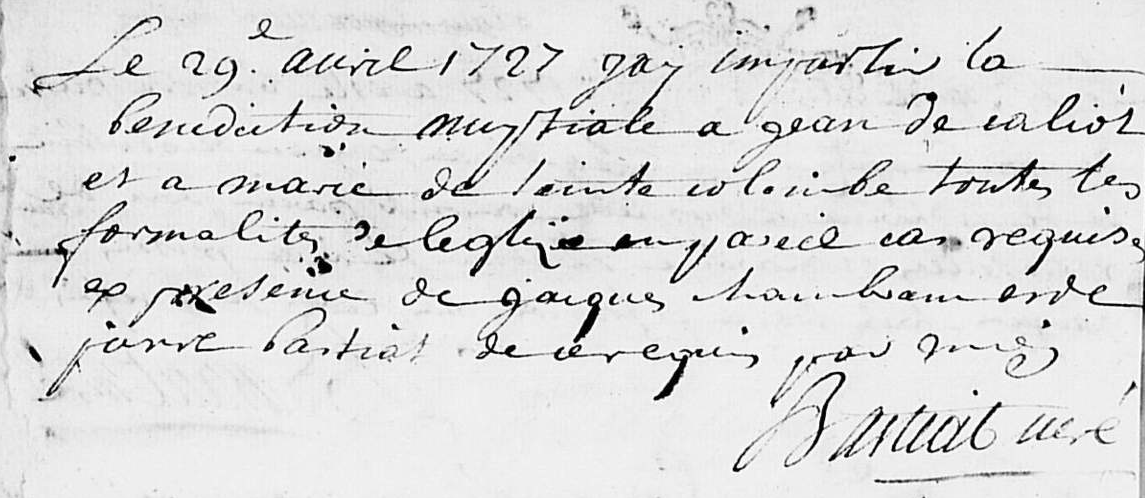 Le 29.e auril 1727 jay impartir la
benediction nuptiale a jean de caliot
et a marie de sainte colombe toutes les
formalites de leglize en pareil cas requises
en presence de jacques et de
pierre Bastiat de ce requis par moy
Bastiat curé